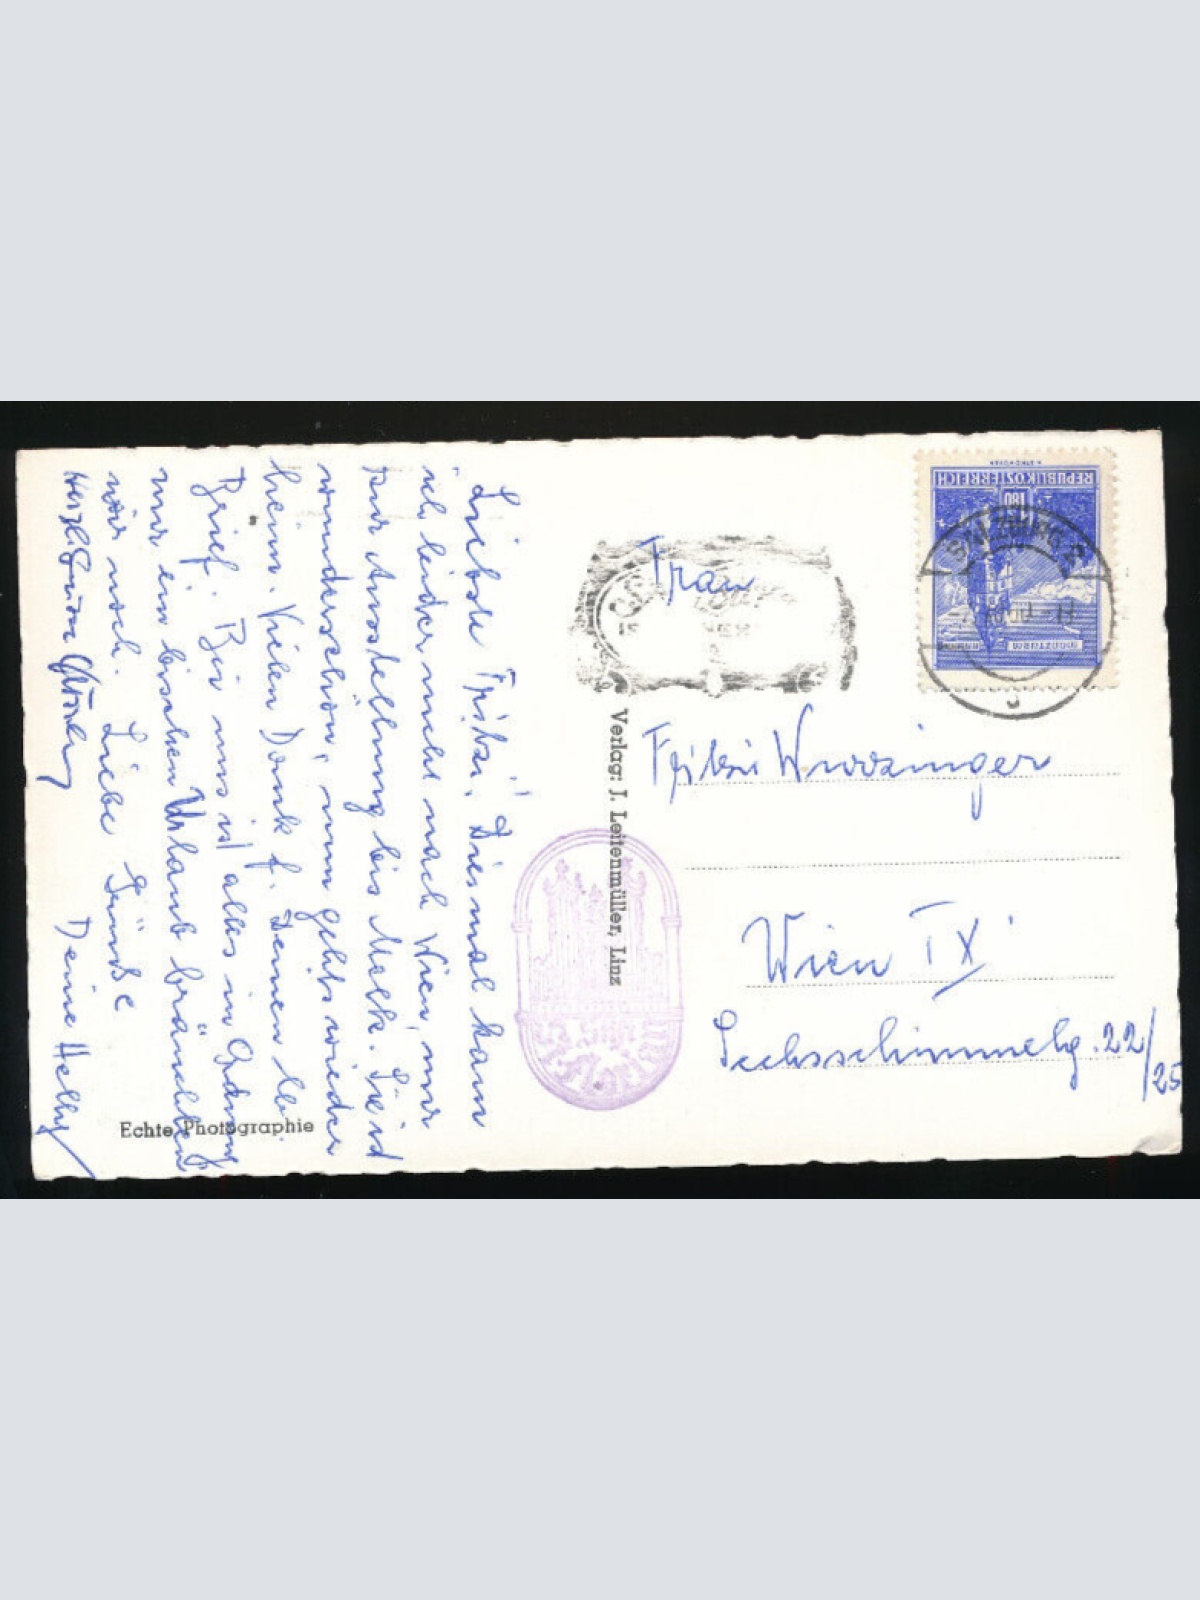 Liebste Fritzi! Diesmal kam
ich leider nicht nach Wien, nur
zur Ausstellung bis Melk. Es ist
wunderschön, nun gehts wieder
heim. Vielen Dank f. Deinen lb.
Brief. Bei uns ist alles in Ordnung
nur ein bischen Urlaub bräuchten
wir noch. Liebe Grüße
Deine Helly
Herzl. Grüße
Echte Photographie
Verlag: J. Leitenmüller, Linz
REPUBLIK ÖSTERREICH
1.80
MÜNZTURM
SALZBURG 2
ST. FLORIAN
Frau
Fritzi Wurzinger
Wien IX
Sechsschimmelg. 22/25